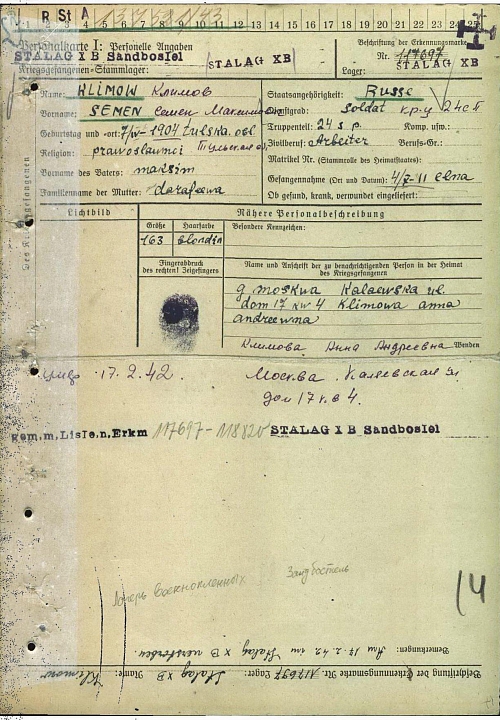 R St A
1 2 3 4 5 6 7 8 9 10 11 12 13 14 15 16 17 18 19 20 21 22 23 24 25
Personalkarte I: Personelle Angaben
Beschriftung der Erkennungsmarke
STALAG X B Sandbostel
Nr. 117697
Kriegsgefangenen-Stammlager: STALAG XB
Lager: STALAG XB
Name: KLIMOW Климов
Staatsangehörigkeit: Russe
Vorname: SEMEN Семен
Dienstgrad: soldat
Truppenteil: 24 s p. Komp. usw.:
Geburtstag und -ort: 7/IV-1904 Tulska. obl
Zivilberuf: Arbeiter Berufs-Gr.:
Religion: prawoslawnei
Matrikel Nr. (Stammrolle des Heimatstaates):
Vorname des Vaters: maksim
Gefangennahme (Ort und Datum):
Familienname der Mutter: darafeewa
Ob gesund, krank, verwundet eingeliefert:
Des Kriegsgefangenen
Lichtbild
Nähere Personalbeschreibung
Größe Haarfarbe Besondere Kennzeichen:
163 blondin
Fingerabdruck
des rechten! Zeigefingers
Name und Anschrift der zu benachrichtigenden Person in der Heimat
des Kriegsgefangenen
g moskwa Kalaewska ul.
dom 17 kw 4 Klimowa anna
andreewna
Климова Анна Андреевна Wenden
умер 17.2.42.
Москва. Каляевская ул
дом 17 к в 4.
gem.m.Liste.n.Erkm 117697- 118820 STALAG X B Sandbostel
Лагерь военнопленных Зандбостель
14
Bemerkungen: Am 17.2.42 im Stalag X B verstorben.
Beschriftung der Erkennungsmarke Nr. 117697 Lager: Stalag XB Name: Klimow